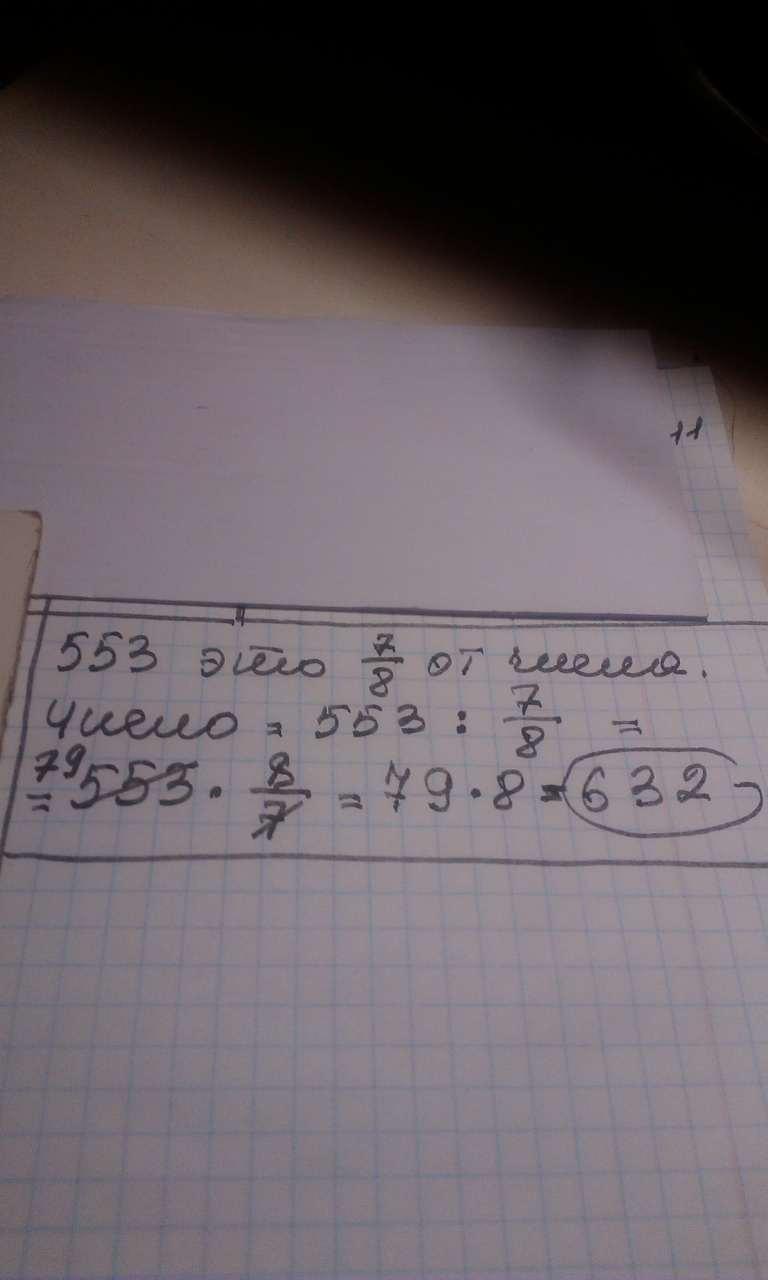 11
553 это 7/8 от числа.
Число = 553 : 7/8 =
= 79 553 · 8/7 = 79 · 8 = 632